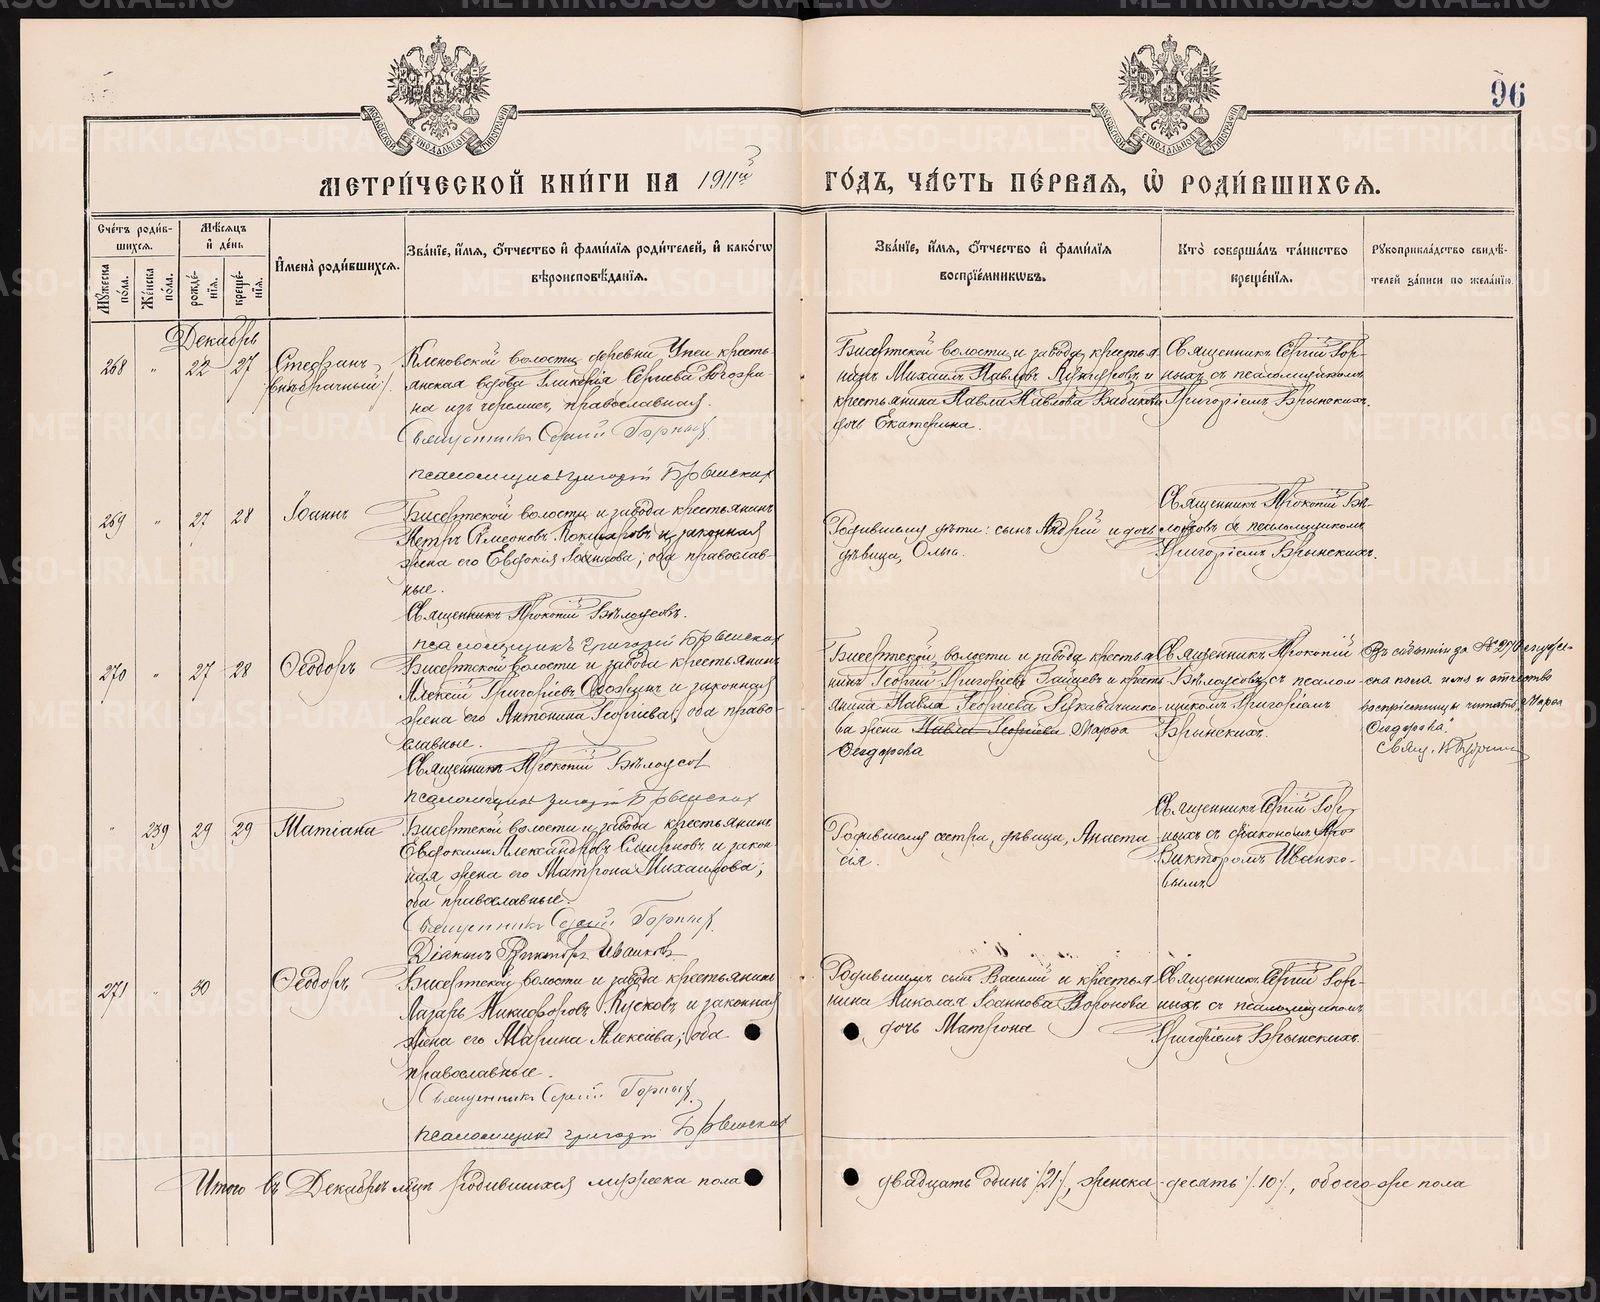 96
МОСКОВСКОЙ СѴНОДАЛЬНОЙ ТИПОГРАФІИ
МОСКОВСКОЙ СѴНОДАЛЬНОЙ ТИПОГРАФІИ
МЕТРИ́ЧЕСКОЙ КНИ́ГИ НА 1911й ГО́ДЪ, ЧА́СТЬ ПЕ́РВАЯ, Ѡ҆ РОДИ́ВШИХСЯ.
Сче́тъ роди́вшихся.
Мꙋ́жеска по́ла.
Же́нска по́ла.
Мѣ́сяцъ и҆ де́нь
рожде́нїя.
креще́нїя.
И҆мена̀ роди́вшихся.
Зва́нїе, и҆́мя, ѻ҆́тчество и҆ фами́лїя роди́телей, и҆ како́гѡ
вѣроисповѣ́данїя.
Зва́нїе, и҆́мя, ѻ҆́тчество и҆ фами́лїя
воспрїе́мникѡвъ.
Кто̀ соверша́лъ та́инство
креще́нїя.
Рꙋкоприкла́дство свидѣ́телей за́писи по жела́нїю.
Декабрь
268 " 22 27 Стефанъ
(внѣбрачный).
Кленовской волости деревни Упеи кресть-
янская вдова Гликерія Сергіева
на изъ черемис, православная.
Священникъ Сергій Горныхъ
псаломщикъ Григорій Брынскихъ
Бисертской волости и завода, крестья-
нинъ Михаилъ Павловъ и
крестьянина Павла Павлова Бабикова
дочь Екатерина.
Священникъ Сергій Гор-
ныхъ съ псаломщикомъ
Григоріемъ Брынскихъ.
269 " 27 28 Іоаннъ
Бисертской волости и завода крестьянинъ
Петръ Симеоновъ Кокшаровъ и законная
жена его Евдокія; оба православ-
ные.
Священникъ Прокопій Бѣлоусовъ.
псаломщикъ Григорій Брынскихъ
Родившемся дѣти: сынъ Андрей и дочь
дѣвица, Ольга.
Священникъ Прокопій Бѣ-
лоусовъ съ псаломщикомъ
Григоріемъ Брынскихъ.
270 " 27 28 Ѳеодоръ
Бисертской волости и завода крестьянинъ
Алексій Григоріевъ и законная
жена его Антонина Георгіева; оба право-
славные.
Священникъ Прокопій Бѣлоусовъ
псаломщикъ Григорій Брынскихъ
Бисертской волости и завода крестья-
нинъ Георгій Григоріевъ и кресть-
янина Павла Георгіева Рукавичнико-
ва жена Павла Георгіева Марѳа
Ѳеодорова
Священникъ Прокопій
Бѣлоусовъ съ псалом-
щикомъ Григоріемъ
Брынскихъ.
Въ событіи за № 270 мужс-
ска пола имя и отчество
воспріемницы читать: "Марѳа
Ѳеодорова".
Свящ.
" 239 29 29 Татіана
Бисертской волости и завода крестьянинъ
Евдокимъ Александровъ Смирновъ и закон-
ная жена его Матрона Михаилова;
оба православные.
Священникъ Сергій Горныхъ
Діаконъ Викторъ Иванковъ
Родившейся сестра, дѣвица, Анаста-
сія.
Священникъ Сергій Гор-
ныхъ съ діакономъ
Викторомъ Иванко-
вымъ
271 " 30 Ѳеодоръ
Бисертской волости и завода крестьянинъ
Лазарь Никифоровъ Кусковъ и законная
жена его Марина Алексіева; оба
православные.
Священникъ Сергій Горныхъ
псаломщикъ Григорій Брынскихъ
Родившихъ сынъ Василій и крестья-
нина Николая Іоаннова Воронова
дочь Матрона
Священникъ Сергій Гор-
ныхъ съ псаломщикомъ
Григоріемъ Брынскихъ.
Итого въ Декабрѣ мцѣ родившихся мужеска пола двадцать одинъ /21/, женска десять /.10/., обоего же пола
METRIKI.GASO-URAL.RU